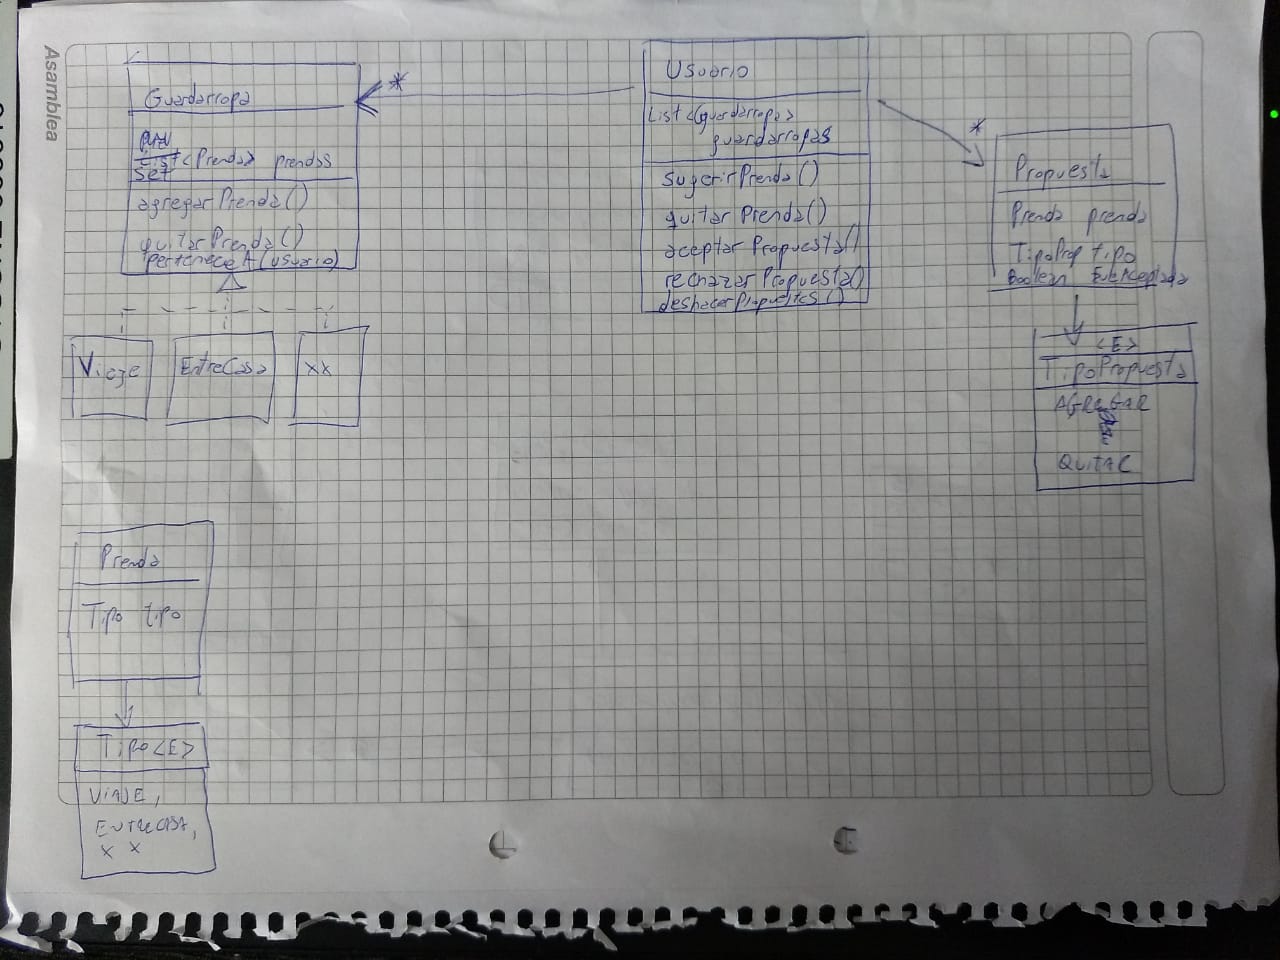 Asamblea
Guardarropa
List<Prenda> prendas
Set
agregarPrenda()
quitarPrenda()
perteneceA(usuario)
Viaje
EntreCasa
xx
Usuario
List<guardarropa>
guardarropas
sugerirPrenda()
quitarPrenda()
aceptarPropuesta()
rechazarPropuesta()
deshacerPropuestas()
*
*
Propuesta
Prenda prenda
TipoProp tipo
Boolean fueAceptada
<E>
TipoPropuesta
AGREGAR
QUITAR
Prenda
Tipo tipo
Tipo<E>
VIAJE,
ENTRECASA,
x x